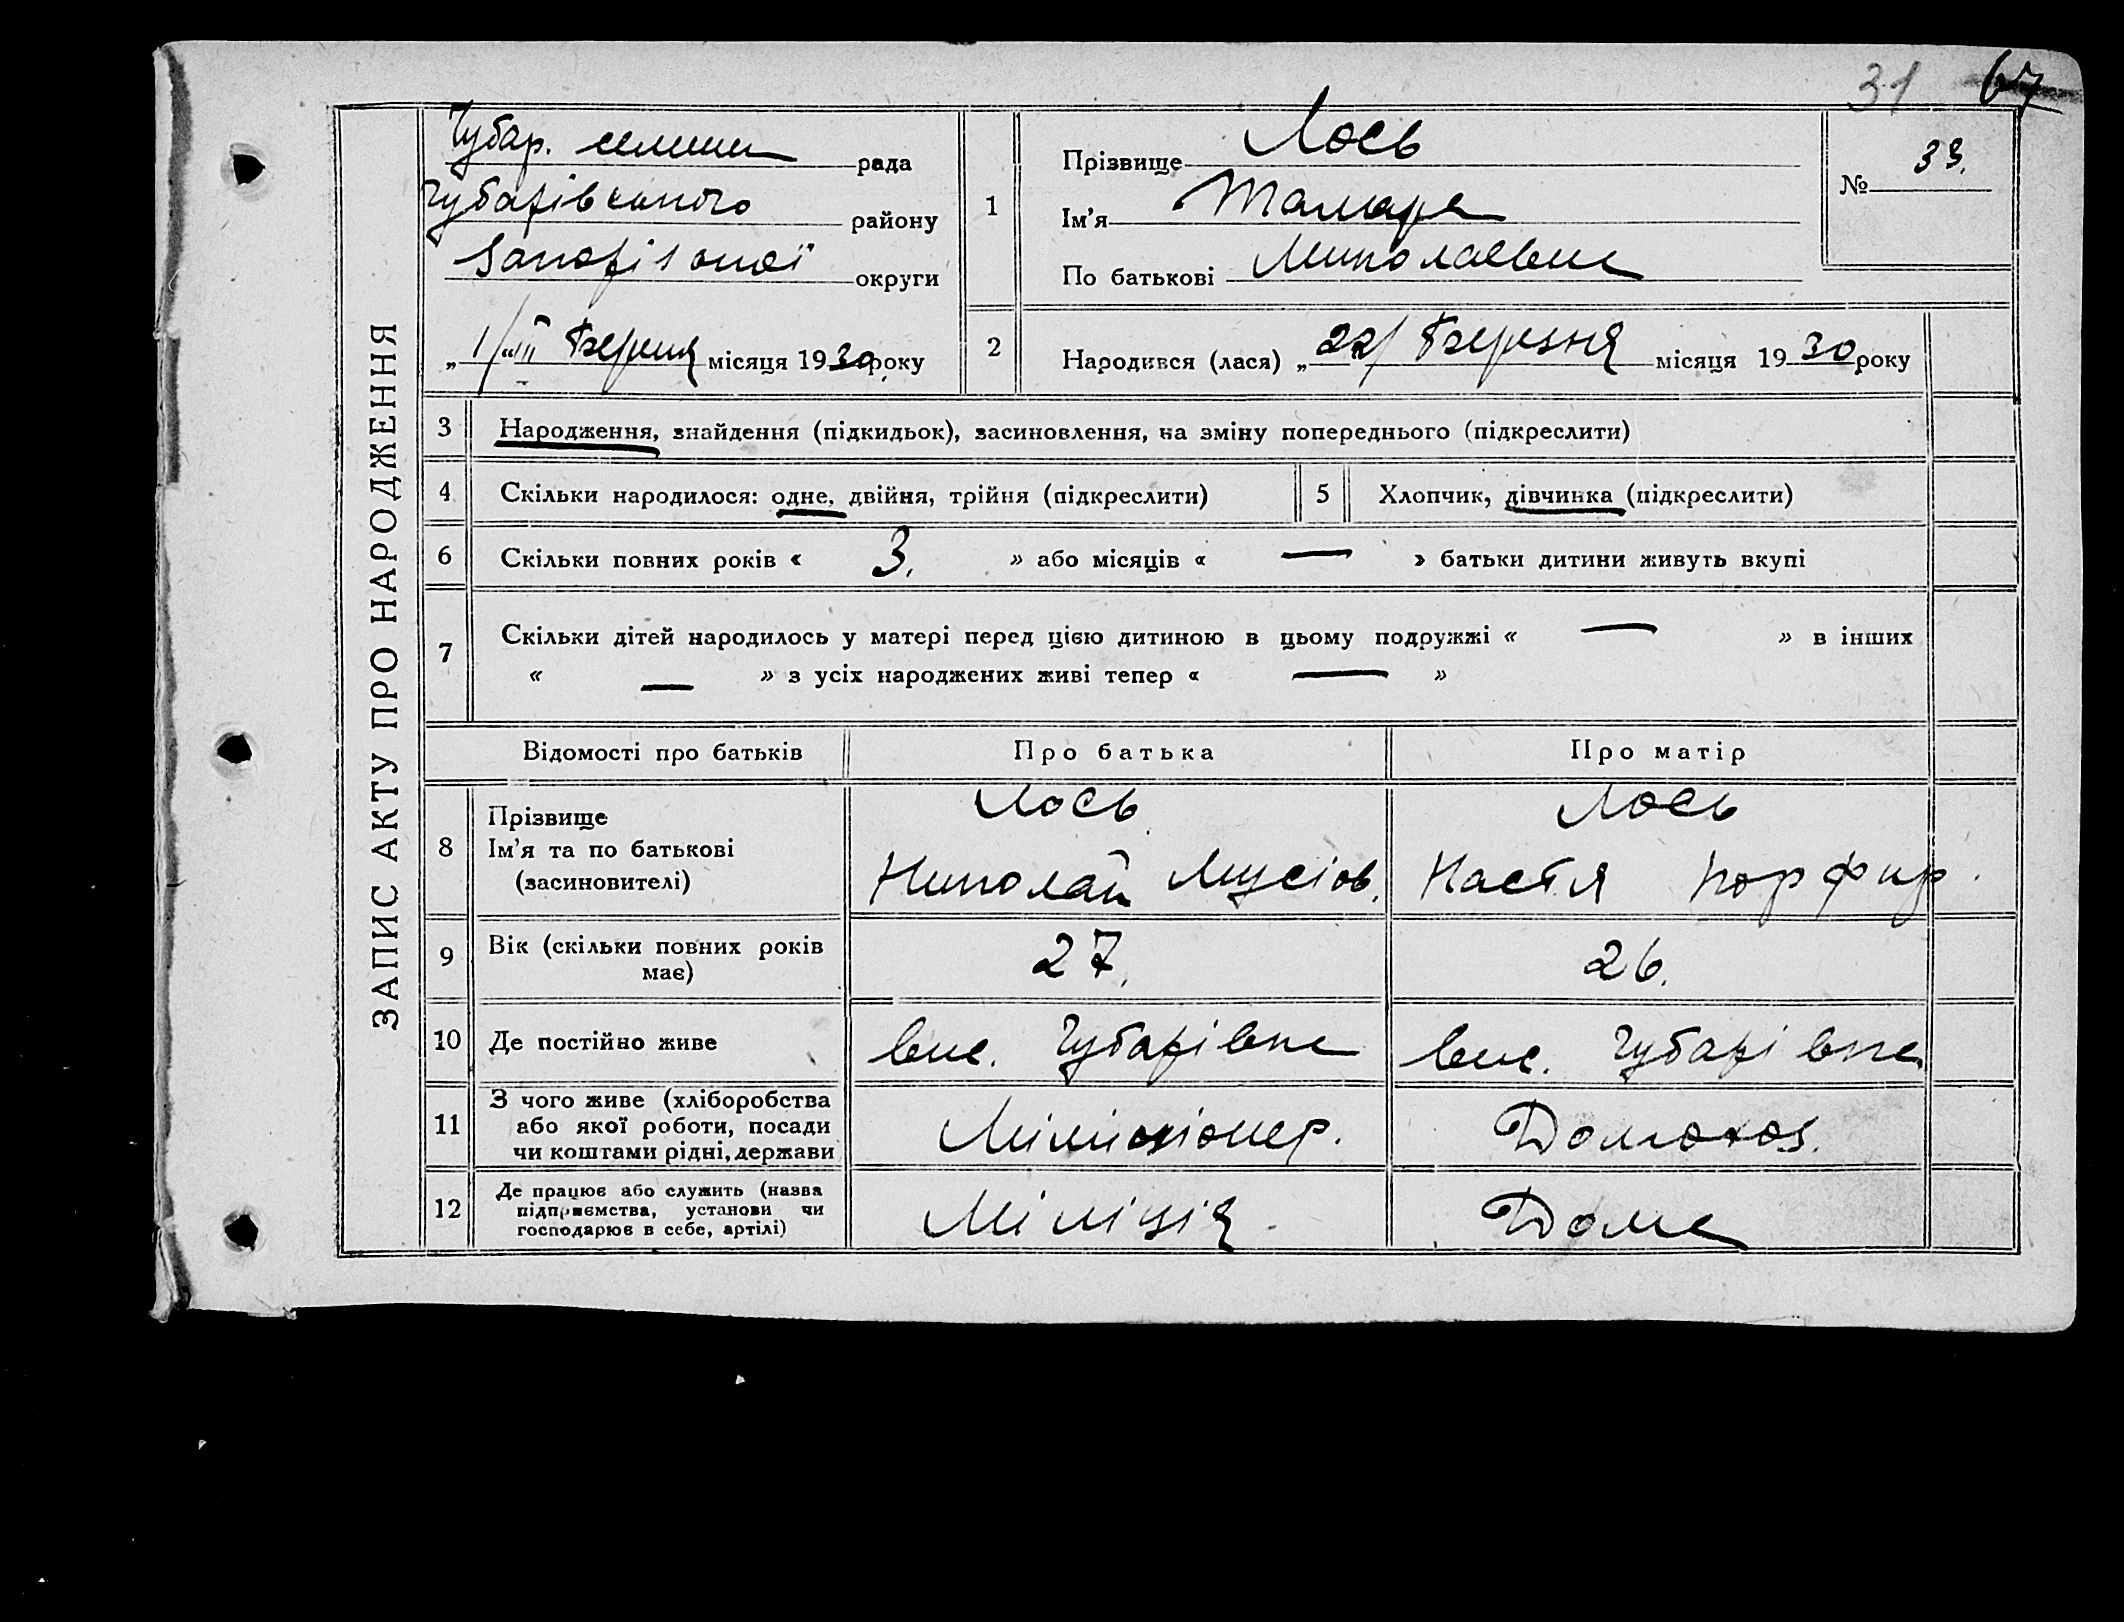 31 67
Чубар. селищн рада
Чубарівського району
Запорізької округи
„ 1/ “ III березня місяця 1930 року
ЗАПИС АКТУ ПРО НАРОДЖЕННЯ
1 Прізвище Лось
Ім’я Тамара
По батькові Миколаевна
№ 33.
2 Народився (лася) „ 22/ березня місяця 1930 року
3 Народження, знайдення (підкидьок), засиновлення, на зміну попереднього (підкреслити)
4 Скільки народилося: одне, двійня, трійня (підкреслити) 5 Хлопчик, дівчинка (підкреслити)
6 Скільки повних років « 3. » або місяців « — » батьки дитини живуть вкупі
7 Скільки дітей народилось у матері перед цією дитиною в цьому подружжі « — » в інших
« — » з усіх народжених живі тепер « — »
Відомості про батьків Про батька Про матір
8 Прізвище Лось Лось
Ім’я та по батькові Николай Мусіов. Настя Порфир.
(засиновителі)
9 Вік (скільки повних років 27. 26.
має)
10 Де постійно живе вис. Чубарівка вис. Чубарівка
11 З чого живе (хліборобства
або якої роботи, посади Міліціонер. Домохоз.
чи коштами рідні, держави
12 Де працює або служить (назва
підприємства, установи чи Міліція. Дома
господарює в себе, артілі)